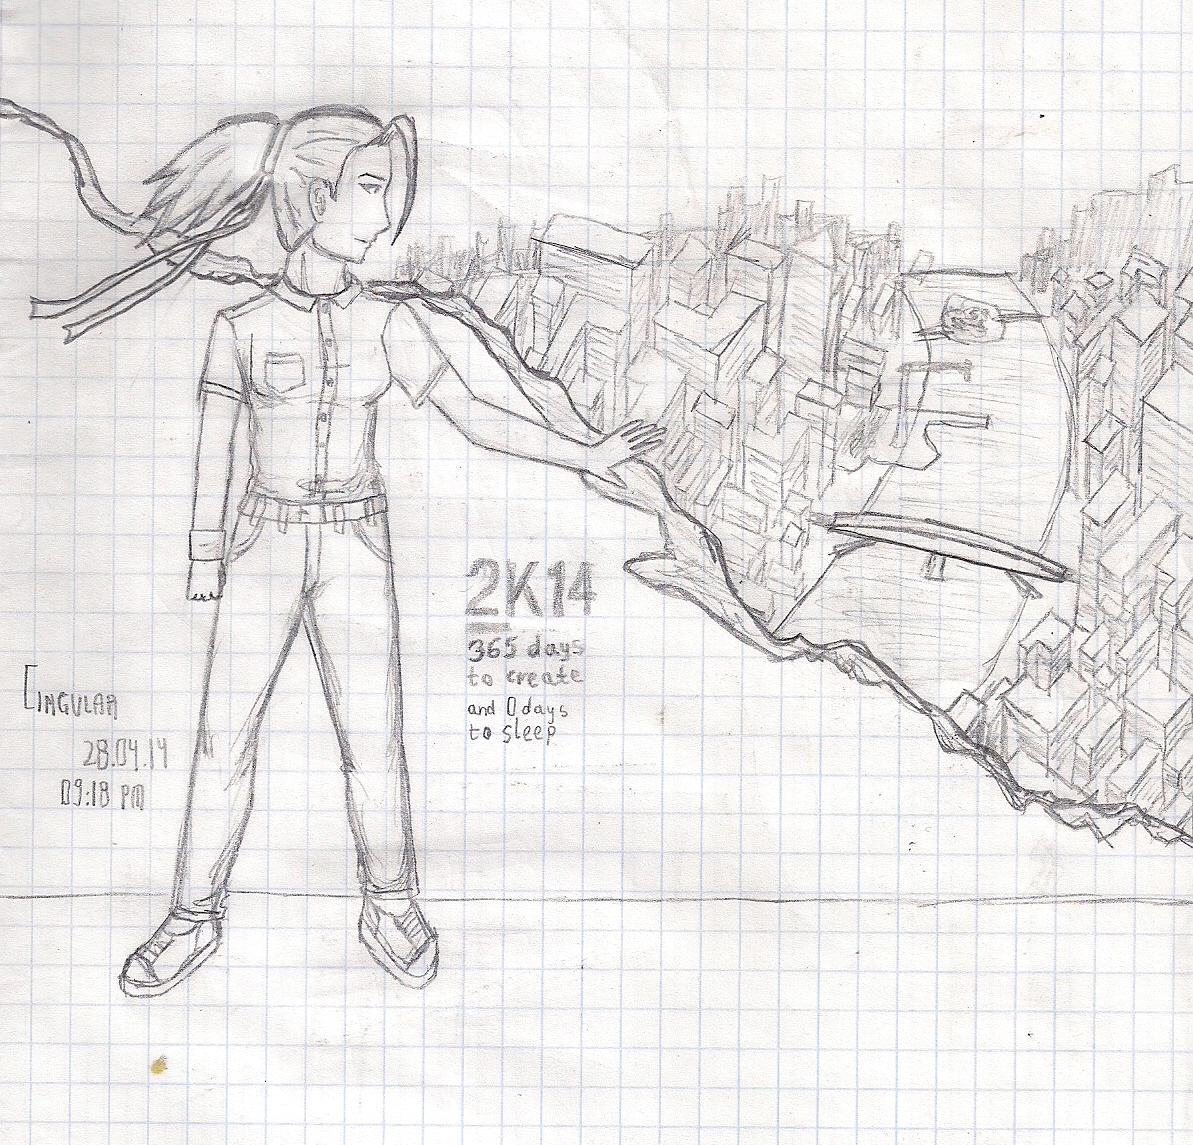 2K14
365 days
to create
and 0 days
to sleep
Cingular
28.04.14
09:18 PM